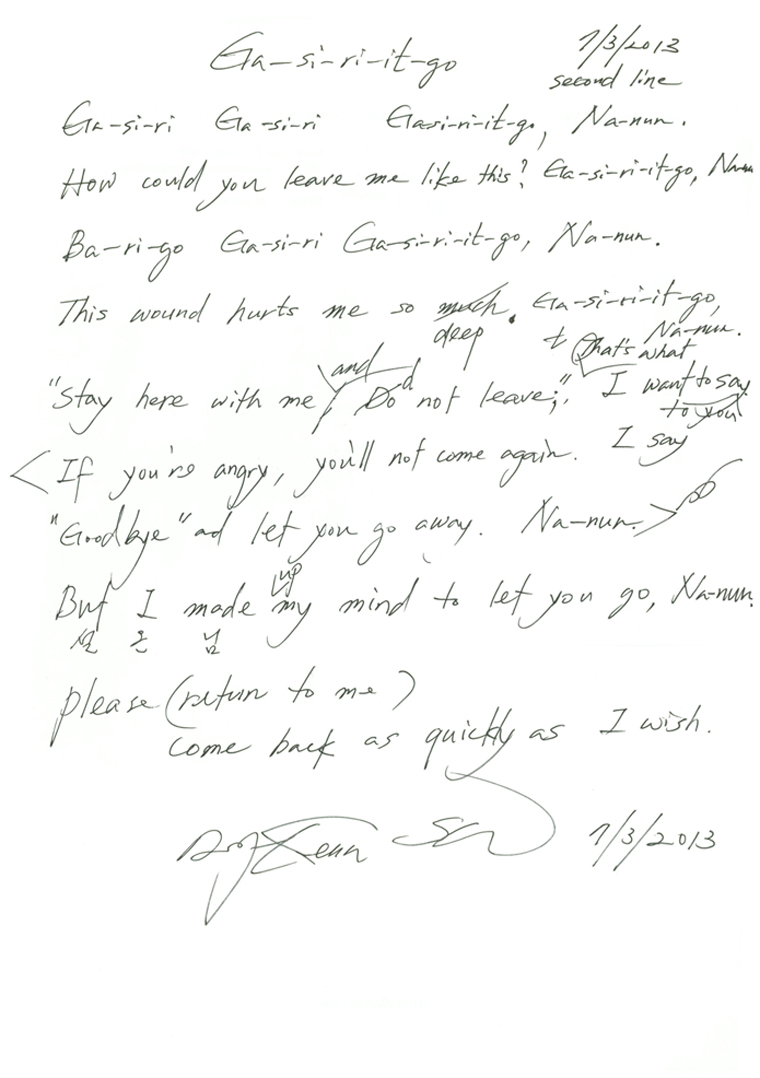 Ga-si-ri-it-go
1/3/2013
second line
Ga-si-ri Ga-si-ri Gasi-ri-it-go, Na-nun.
How could you leave me like this? Ga-si-ri-it-go, Na-nun
Ba-ri-go Ga-si-ri Ga-si-ri-it-go, Na-nun.
This wound hurts me so much. Ga-si-ri-it-go,
deep
Na-nun.
and
that's what
"Stay here with me, Do not leave;" I want to say
to you
If you're angry, you'll not come again. I say
"Goodbye" ad let you go away. Na-nun.
up
But I made my mind to let you go, Na-nun.
셜 온 님
please (return to me)
come back as quickly as I wish.
1/3/2013